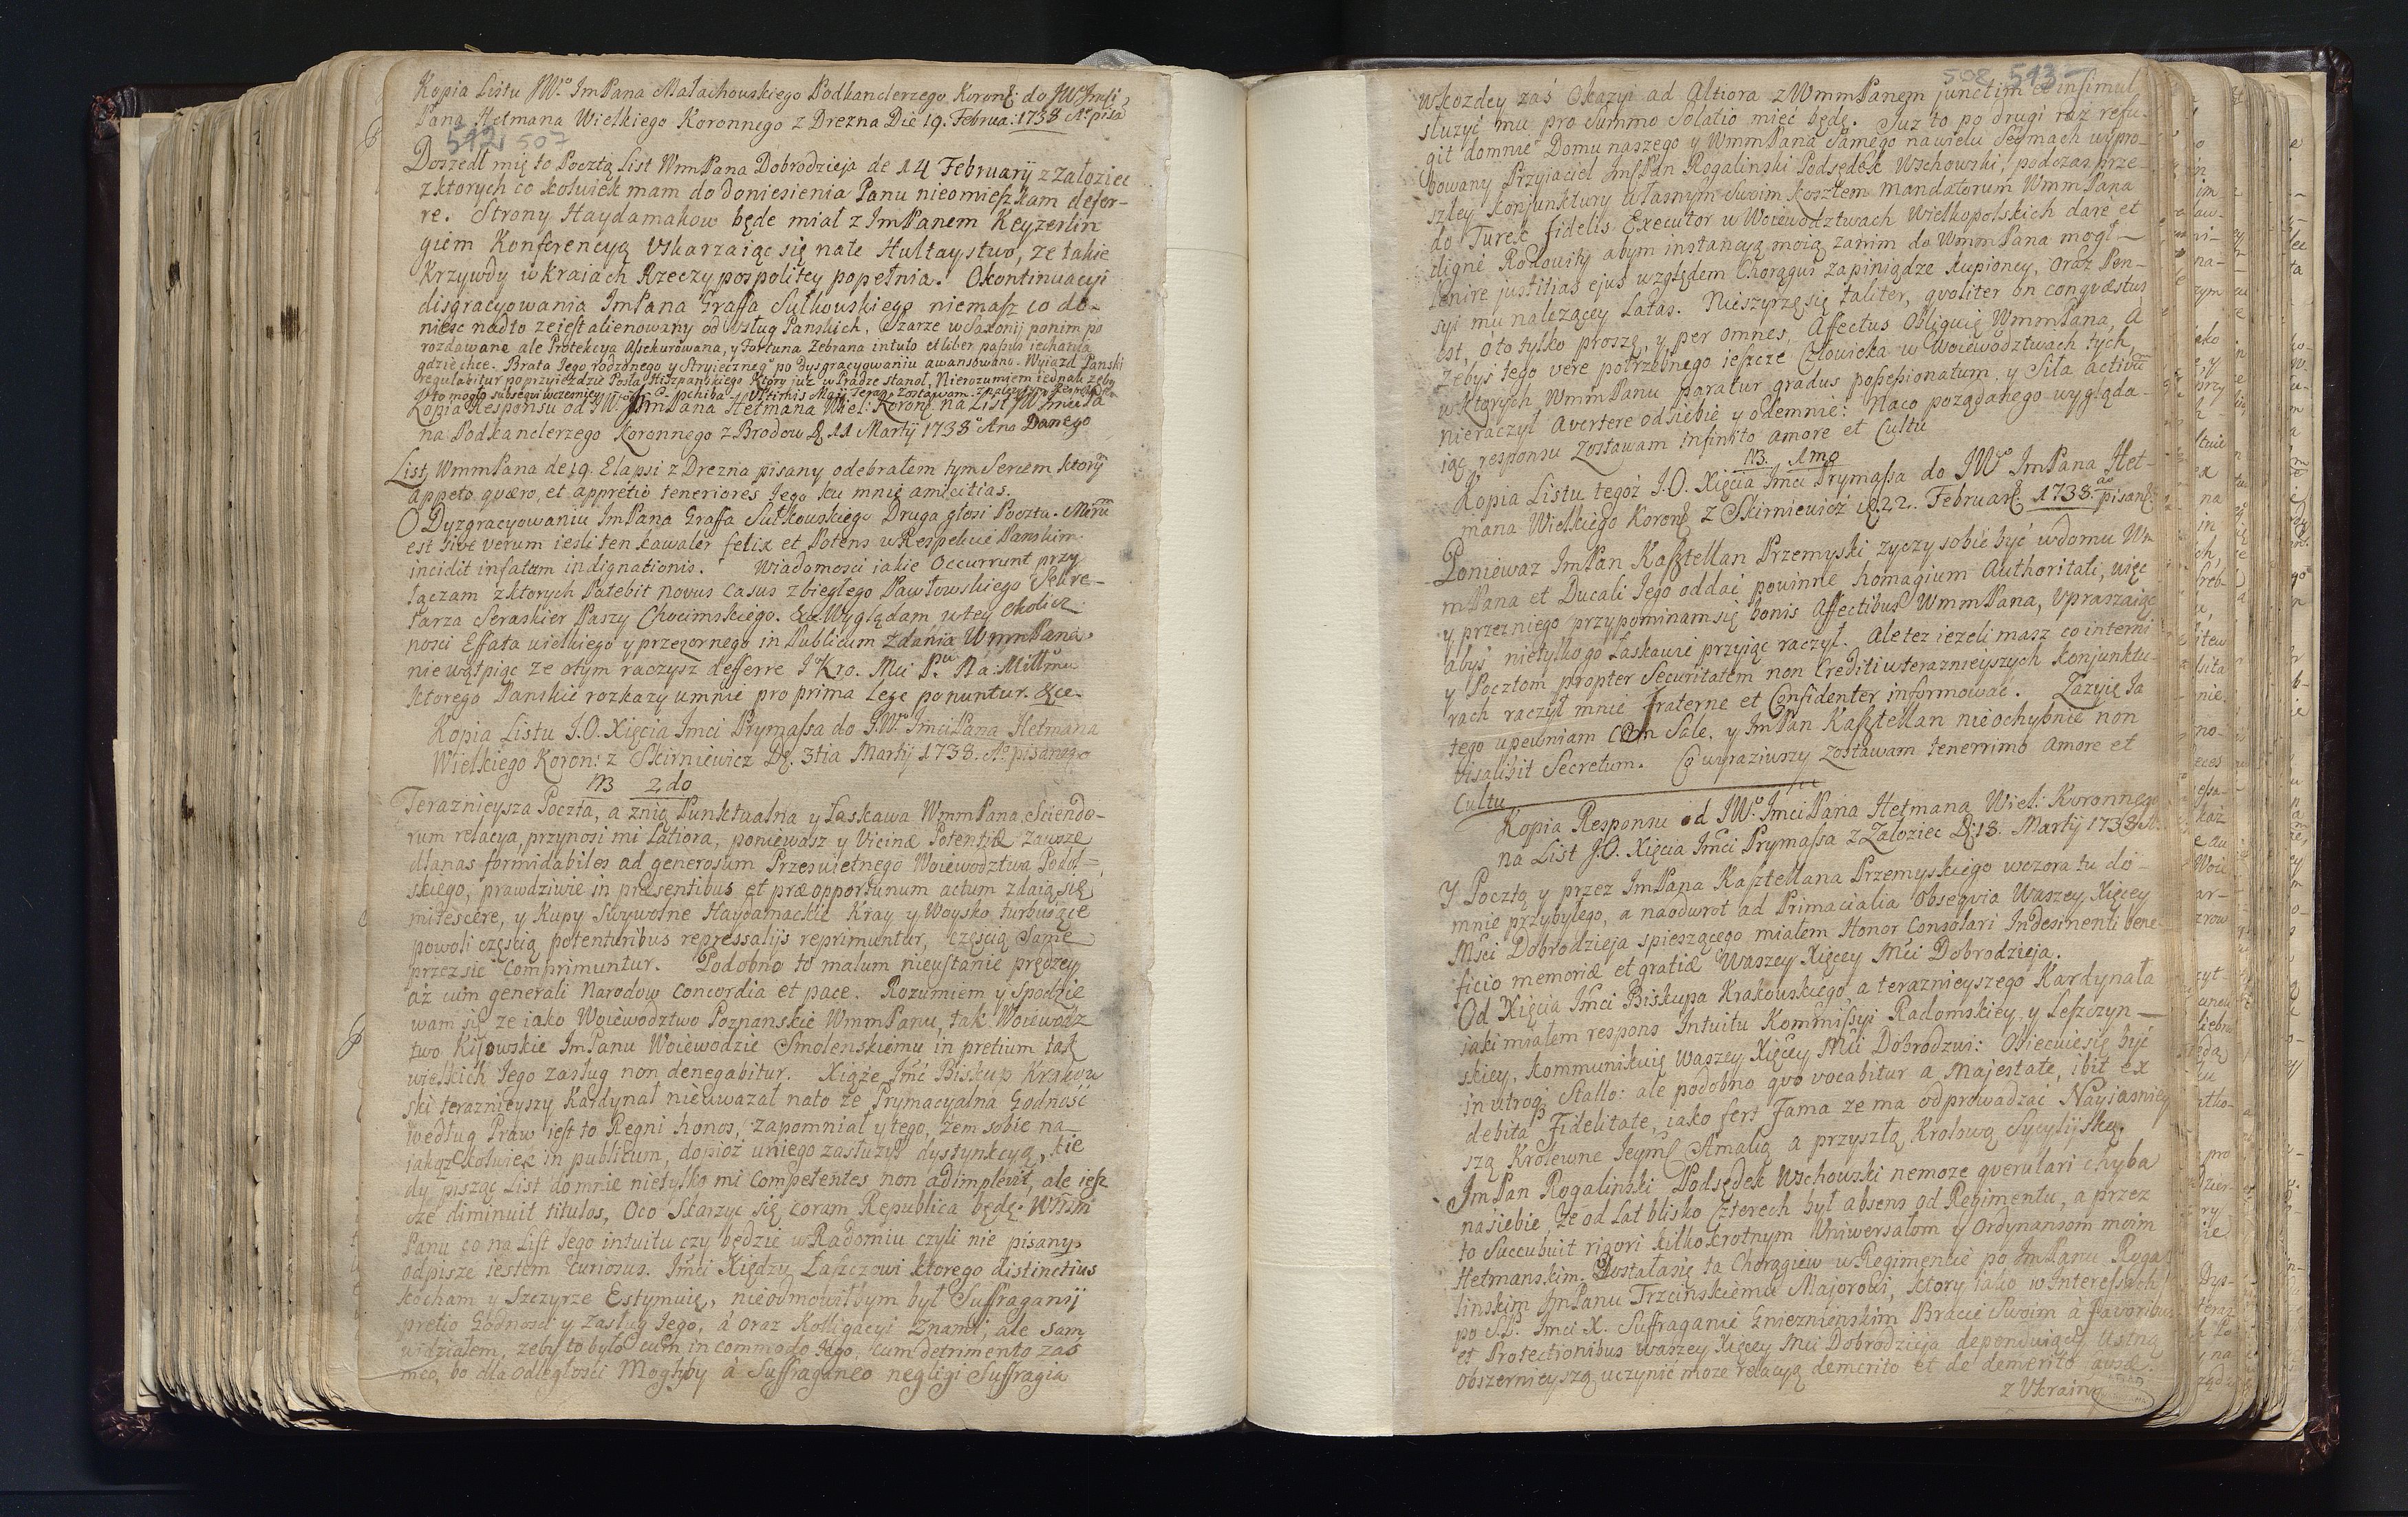 Kopia Listu JWo ImPana Małachowskiego Podkanclerzego Koronę: do JWImści
Pana Hetmana Wielkiego Koronnego z Drezna Die 19. Februa: 1738 Ao pisa
512 507
Doszedł mię to Pocztą List WmPana Dobrodzieja de 14 Februarij z Załoziec
z ktorych co kolwiek mam do doniesienia Panu nieomieszkam defer-
re. Strony Haydamakow będe miał z ImPanem Keyzerlin
giem Konferencyą Uskarzaiąc się nate Hultaystwo, ze takie
Krzywdy w kraiach Rzeczy pospolitey popełnia. O kontinuacyi
disgracyowania ImPana Graffa Sułkowskiego niemasz co do-
niesc nadto ze iest alienowany od Usług Panskich, Szarze w Saxonij ponim po
rozdawane ale Protekcya Assekurowana, y Fortuna Zebrana in tuto et liber passus iechania
gdzie chce. Brata Iego rodzonego y Stryiecznego po dysgracyowaniu awansowano. Wyiazd Panski
regulabitur po przyiezdzie Posła Hiszpanskiego Ktory iuz w Pradze stanoł, Nierozumiem iednak zeby
to mogło subsequi wczesniey chiba Ultimis Maij. Teraz Zostawam
Kopia Responsu od JW. ImPana Hetmana Wiel: Koron: na List JWImci Pa
na Podkanclerzego Koronnego z Brodow D. 11 Martij 1738 Ano Danego
List WmmPana de 19. Elapsi z Drezna pisany odebrałem tym Sercem ktorym
appeto quæro, et appretio teneriores Iego ku mnie amicitias.
O Dyzgracyowaniu ImPana Graffa Sułkowskiego Druga głosi Poczta. Mirum
est sive verum iesli ten kawaler felix et Potens w Respekcie Panskim
incidit in fatum indignationis. Wiadomosci iakie Occurrunt przy
łączam z ktorych Patebit novus Casus zbiegłego Pawłowskiego Sekre-
tarza Seraskier Paszy Chocimskiego. &a Wyglądam w tey okolicz
nosci Effata wielkiego y przezornego in Publicum Zdania WmmPana,
nie wątpiąc ze otym raczysz defferre J Kro. Mci Pu Na: Miłłmu
ktorego Panskie rozkazy u mnie pro prima Lege ponuntur. &ce.
Kopia Listu J.O. Xięcia Imci Prymassa do J.Wo Imci Pana Hetmana
Wielkiego Koron: z Skirniewicz D. 3tia Martij 1738. Ao pisanego
NB 2do
Teraznieysza Poczta, a znią Punktualna y Łaskawa WmmPana Sciendo-
rum relacya, przynosi mi Latiora, poniewasz y Vicinæ Potentiæ Zawsze
dla nas formidabiles ad generosum Przeswietnego Woiewodztwa Podol-
skiego, prawdziwie in præsentibus et præopportunum actum zdaią się
mitescere, y Kupy Swywolne Haydamackie Kray y Woysko turbuiące
powoli częscią potenturibus repressalijs reprimuntur, częscią Same
przez się Comprimuntur. Podobno to malum nieustanie prędzey
aż cum generali Narodow Concordia et pace. Rozumiem y Spodzie
wam się ze iako Woiewodztwo Poznanskie WmmPanu, tak Woiewodz
two Kijowskie ImPanu Woiewodzie Smolenskiemu in pretium tak
wielkich Iego zasług non denegabitur. Xiąże Imć Biskup Krakow
ski teraznieyszy Kardynał nieuwazał nato że Prymacyalna Godność
według Praw iest to Regni honos, zapomniał y tego, żem sobie na
iakązkolwiek in publicum, dopioż u niego zasłużył dystynkcyą, kie
dy pisząc List do mnie nietylko mi Competentes non adimplevit, ale iesz
cze diminuit titulos, Oco Skarzyć się coram Republica będę. Wmm
Panu co na List Iego intuitu czy będzie w Radomiu czyli nie pisany
odpisze iestem Curiosus. Imci Xiędzu Łaszczowi ktorego distinctius
kocham y Szczyrze Estymuię, nieodmowiłbym był Suffraganij
pretio Godnosci y Zasług Iego, a oraz Kolligacyi Znami, ale sam
widziałem, żeby to było cum incommodo Iego, cum detrimento zas
meo, bo dla odległosci Mogłyby à Suffraganeo negligi Suffragia
508 513
Wkozdey zaś Okazyi ad Altiora z WmmPanem junctim et insimul
służyć mu pro Summo Solatio mieć będę. Już to po drugi raz refu-
git domnie Domu naszego y WmmPana Samego nawielu Seymach wypro-
bowany Przyiaciel ImPan Rogalinski Podsędek Wschowski, podczas prze-
szłey Konjunktury własnym Swoim kosztem Mandatorum WmmPana
do Turek fidelis Executor w Woiewodztwach Wielkopolskich darè et
dignè Rodowity abym instancyą moią zanim do WmmPana mogł
lenire justitias ejus względem Chorągwi zapiniądze kupioney, oraz Pen-
syi mu nalezącey Latas. Nieszyrzę się taliter, qualiter on conquæstus
est, oto tylko proszę, y per omnes Affectus Obliguię WmmPana, A
żebyś tego vere potrzebnego ieszcze Człowieka w Woiewodztwach tych,
w ktorych WmmPanu paratur gradus possessionatum y Siła activũ
nieraczył Avertere od siebie y odemnie: Naco pożądanego wygląda-
iąc responsu Zostawam infinito amore et Cultu
NB. 1mo
Kopia Listu tegoż J.O. Xięcia Imci Prymassa do JWo ImPana Het-
mana Wielkiego Koronę z Skirniewicz D. 22. Februarę. 1738. ao pisanę
Poniewaz ImPan Kasztellan Przemyski zyczy sobie być w domu Wm
mPana et Ducali Iego oddać powinne homagium Authoritati, więc
y przezniego przypominam się bonis Affectibus WmmPana, Upraszaiąc
abyś nietylko go Łaskawie przyiąc raczył. Ale tez iezeli masz co interni
y Pocztom propter Securitatem non Crediti w teraznieyszych konjunktu-
rach raczył mnie fraterne et Confidenter informować. Zażyię Ia
tego upewniam Cum Sale, y ImPan Kasztellan nieochybnie non
visalibit Secretum. Co wyraziwszy zostawam tenerrimo amore et
Cultu
Kopia Responsu od JWo Imci Pana Hetmana Wiel: Koronnego
na List J.O. Xięcia Imci Prymassa z Załoziec D. 13. Martij 1738 A.
Y Pocztą y przez ImPana Kasztellana Przemyskiego wczora tu do
mnie przybyłego, a naodwrot ad Primacialia Obsequia Waszey Xięcey
Mści Dobrodzieja spieszącego miałem Honor Consolari Indesinenti bene-
ficio memoriæ et gratiæ Waszey Xięcey Mci Dobrodzieja.
Od Xięcia Imci Biskupa Krakowskiego a teraznieyszego Kardynała
iaki miałem respons Intuitu Kommissyi Radomskiey y Leszczyn
skiey, kommunikuię Waszey Xięcey Mci Dobrodziwi: Obiecuie się być
in utroq Stallo: ale podobno quo vocabitur a Majestate, ibit ex
debita Fidelitate, iako fert Fama ze ma odprowadzać Nayiasniey
szą Krolewne Ieymć Amalią a przyszłą Krolową Sycylijską.
ImPan Rogalinski Podsędek Wschowski nemoze querulari chyba
nasiebie, że od Lat blisko Czterech był absens od Regimentu, a przez
to Succubuit rigori kilkokrotnym Uniwersałom y Ordynansom moim
Hetmanskim. Dostała się ta Chorągiew w Regimencie po ImPanu Roga
linskim ImPanu Trzcinskiemu Majorowi, ktory iako w Interessach
po S.P. Imci X. Suffraganie Gnieznienskim Bracie Swoim à favoribus
et Protectionibus Waszey Xięcey Mci Dobrodzieja dependuiący Ustną
obszernieyszą uczynić moze relacyą demerito et de demerito ausæ.
z Ukrainy